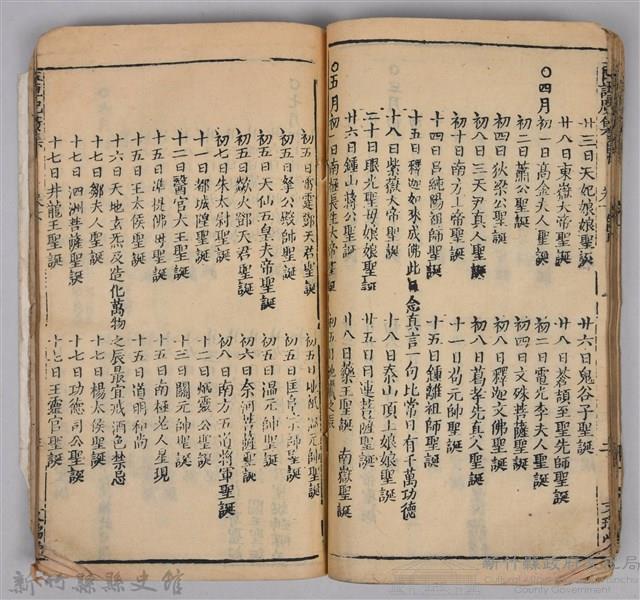 廿三日天妃娘娘聖誕 廿六日鬼谷子聖誕
廿八日東嶽大帝聖誕 廿八日蒼頡至聖先師聖誕
○四月
初一日高金夫人聖誕 初二日電光李夫人聖誕
初二日蕭公聖誕 初四日文殊菩薩聖誕
初四日狄梁公聖誕 初八日釋迦文佛聖誕
初八日三天尹真人聖誕 初八日葛孝先真人聖誕
初十日南方上帝聖誕 十一日苟元帥聖誕
十四日呂純陽祖師聖誕 十五日鍾離祖師聖誕
十五日釋迦如來成佛此日念真言一句比常日有千萬功德
十八日紫微大帝聖誕 十八日泰山頂上娘娘聖誕
二十日眼光聖母娘娘聖誕 廿五日日連菩薩聖誕
廿六日鍾山蔣公聖誕 廿八日藥王聖誕
○五月
初一日南極長生大帝聖誕 南嶽聖誕
初五日雷霆鄧天君聖誕 初五日地祇溫元帥聖誕
初五日拏公殿帥聖誕 初五日匡阜宗師聖誕
初五日天仙五皇夫帝聖誕 初五日溫元帥聖誕
初五日歘火鄧天君聖誕 初六日奈河菩薩聖誕
初七日朱太尉聖誕 初八日南方五道將軍聖誕
十一日都城隍聖誕 十二日炳靈公聖誕
十二日醫官大王聖誕 十三日關元帥聖誕
十五日準提佛母聖誕 十五日南極老人星現
十五日王太侯聖誕 十五日道明和尚
十六日天地玄炁及造化萬物之辰最宜戒酒色禁忌
十七日鄒夫人聖誕 十七日楊太侯聖誕
十七日泗洲菩薩聖誕 十七日功德司公聖誕
十七日井龍王聖誕 十七日王靈官聖誕
新竹縣縣史館
新竹縣政府文化局
County Government